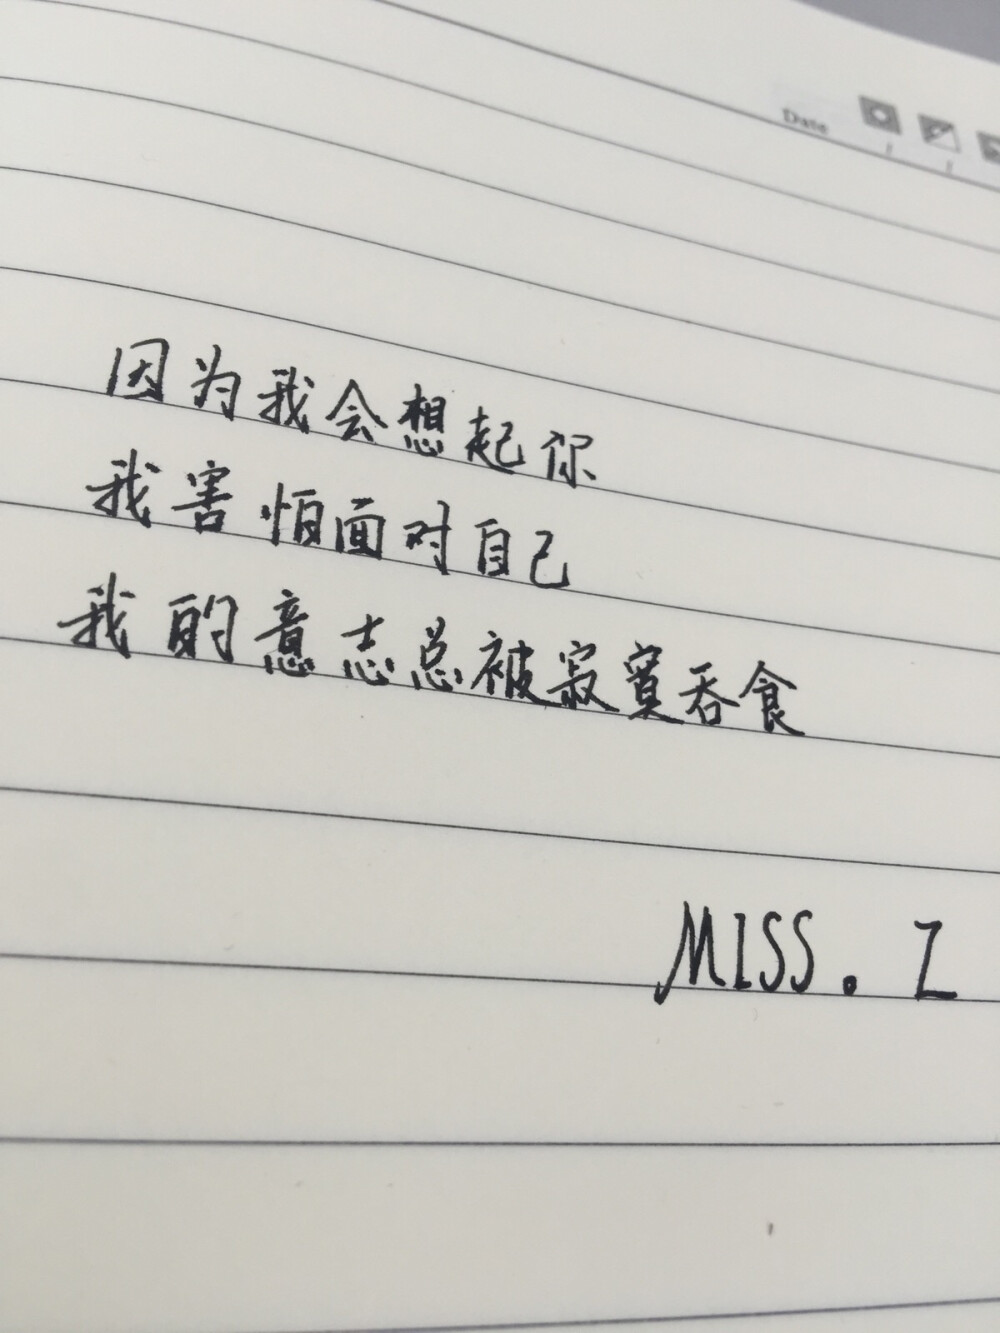 Date
因为我会想起你
我害怕面对自己
我的意志总被寂寞吞食
MISS. Z